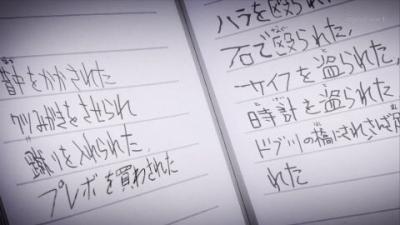 背中をかかされた
クツみがきをさせられ
蹴りを入れられた
プレボを買わされた
ハラを殴られた
石で殴られた
サイフを盗られた
時計を盗られた
ドブ川の橋に
れた